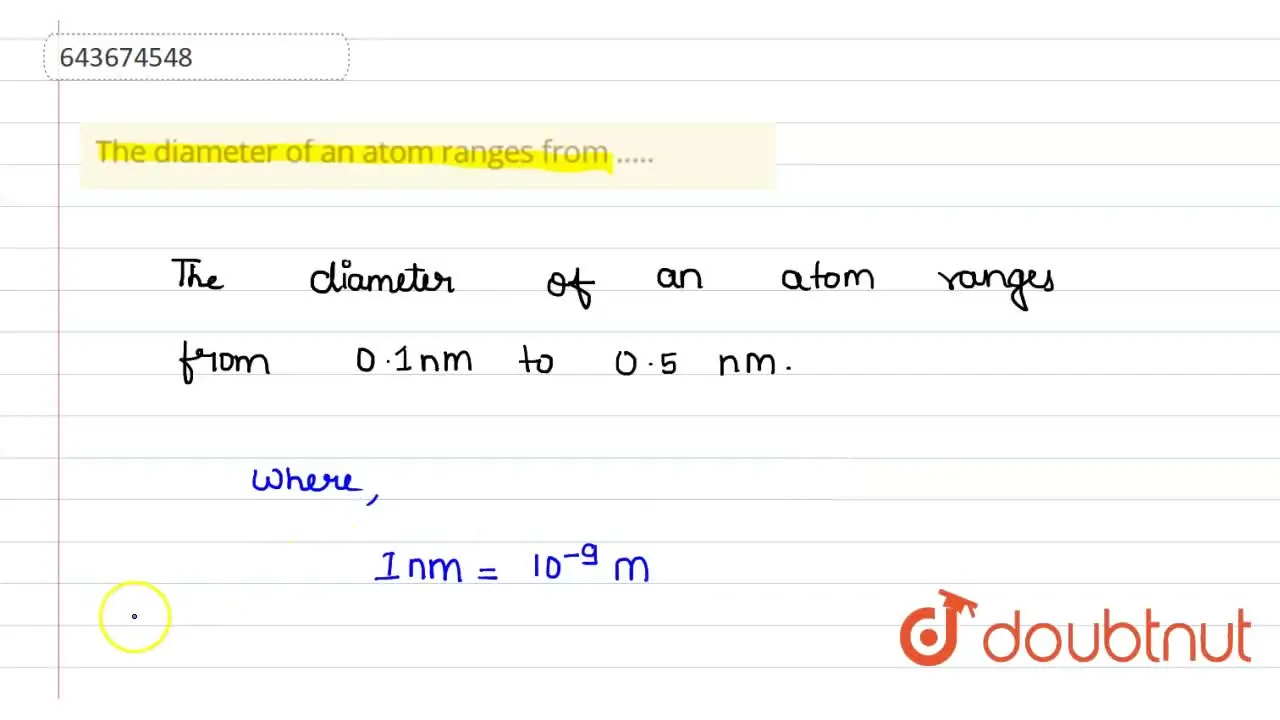 643674548
The diameter of an atom ranges from .....
The diameter of an atom ranges
from 0.1nm to 0.5 nm.
Where,
1nm = 10⁻⁹ m
doubtnut